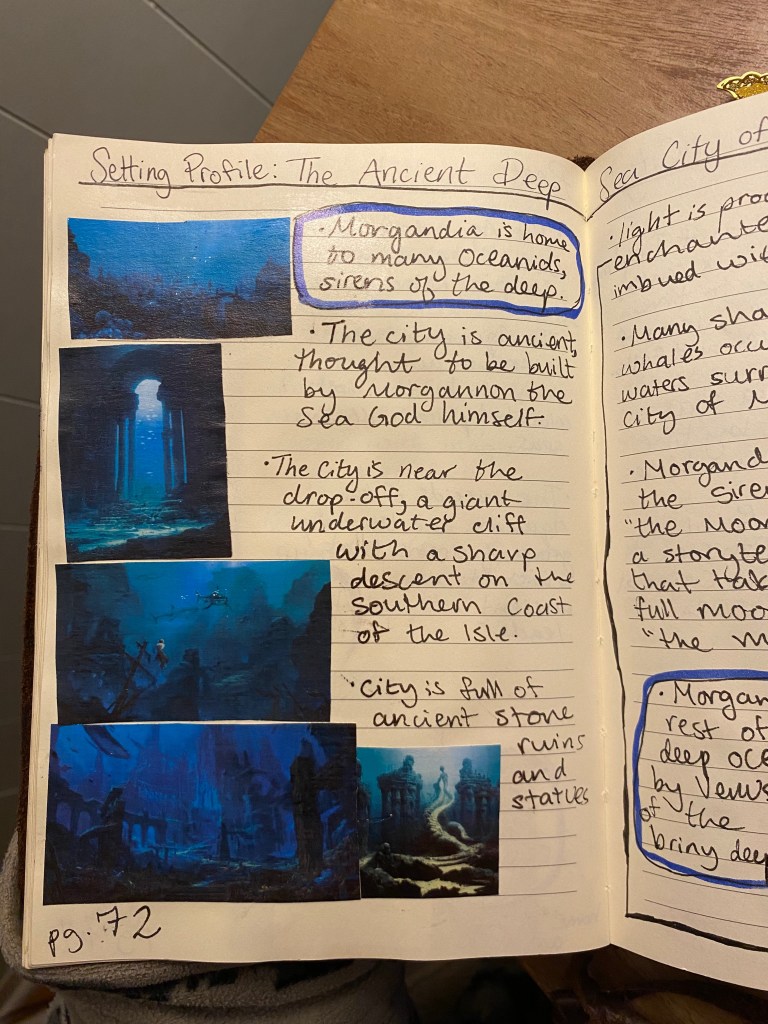 Setting Profile: The Ancient Deep
· Morgandia is home
to many Oceanids,
sirens of the deep.
· The city is ancient,
thought to be built
by Morgannon the
Sea God himself.
· The City is near the
drop-off, a giant
underwater cliff
with a sharp
descent on the
southern Coast
of the Isle.
· City is full of
ancient stone
ruins
and
statues
pg. 72
Sea City of
· light is
enchante
imbued
· Many sha
whales occu
waters surr
City of M
· Morgand
the sire
"the Moo
a storyte
that tak
full moo
"the m
· Morgan
rest of
deep oce
by
of the
briny deep